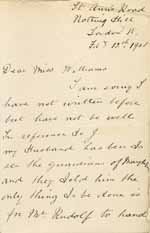 St Ann's Road
Notting Hill
London W.
Feb 12th 1901
Dear Miss Williams
I am sorry I
have not written before
but have not be well
In reference to J
my Husband has been to
see the guardians of
and they told him the
only thing to be done is
for Mr Rudolf to hand